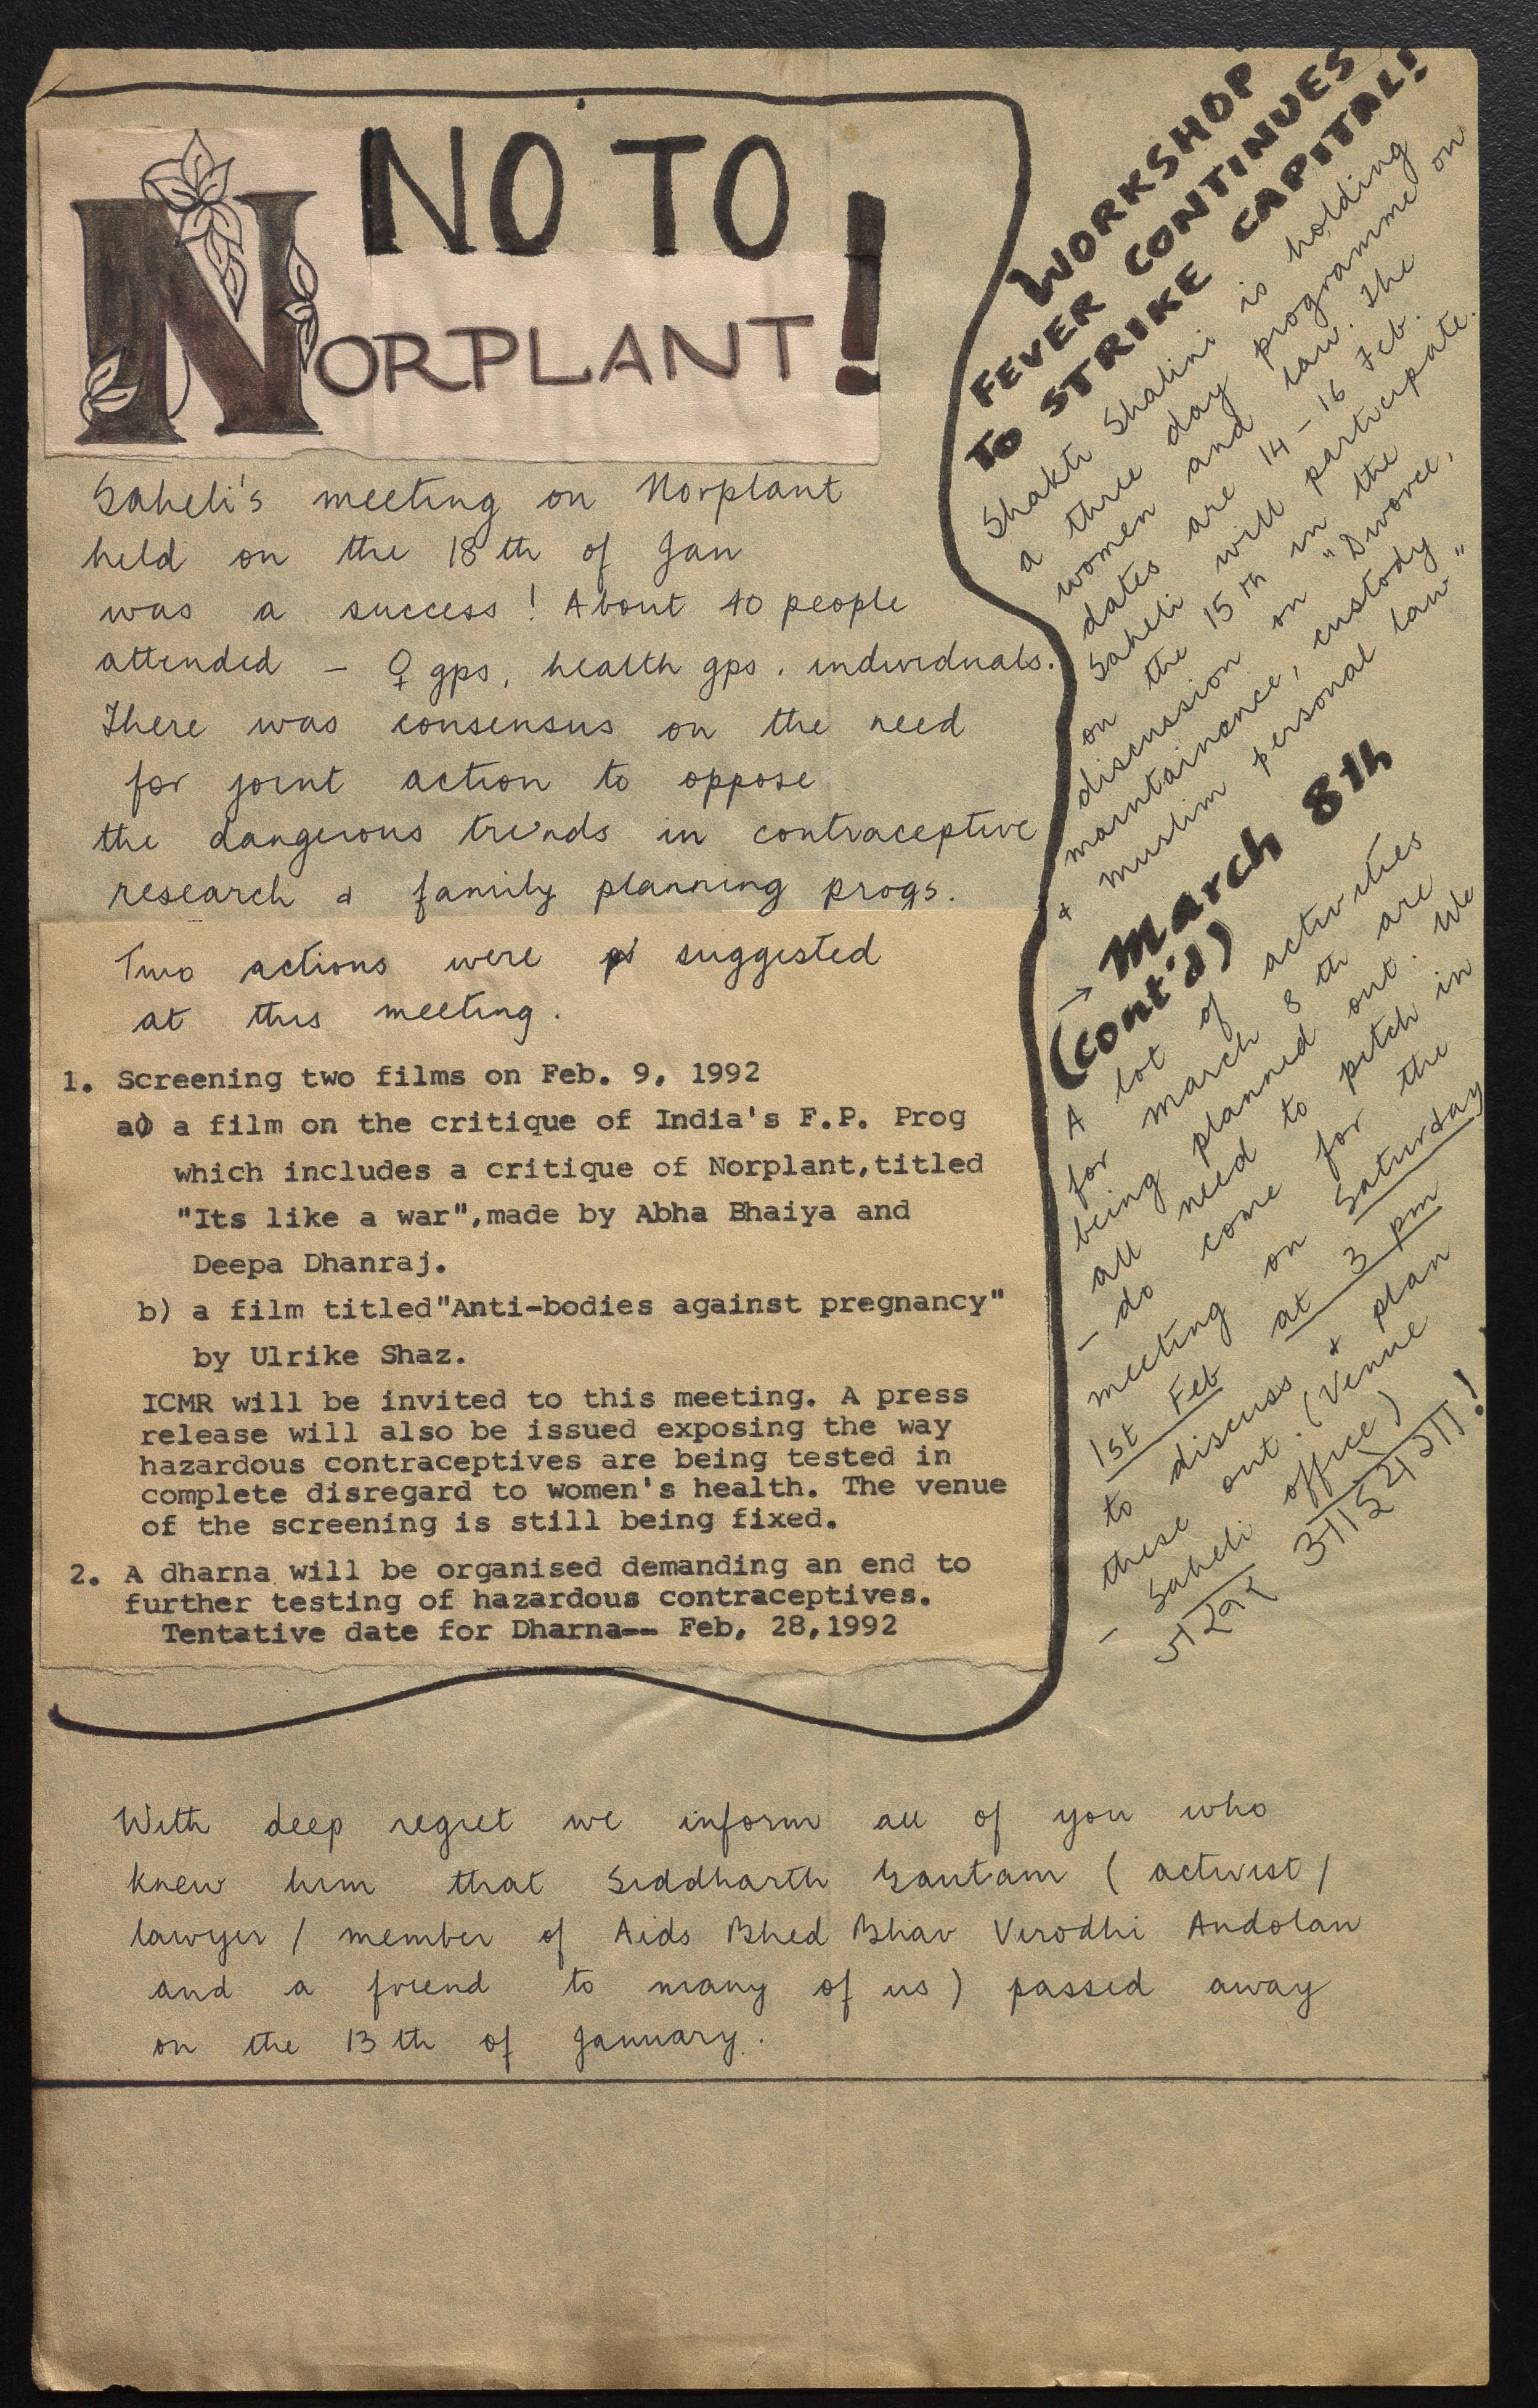 NO TO
NORPLANT!
Saheli's meeting on Norplant
held on the 18th of Jan
was a success! About 40 people
attended – ♀ gps, health gps, individuals.
There was consensus on the need
for joint action to oppose
the dangerous trends in contraceptive
research & family planning progs.
Two actions were suggested
at this meeting.
1. Screening two films on Feb. 9, 1992
a) a film on the critique of India's F.P. Prog
which includes a critique of Norplant,titled
"Its like a war",made by Abha Bhaiya and
Deepa Dhanraj.
b) a film titled"Anti-bodies against pregnancy"
by Ulrike Shaz.
ICMR will be invited to this meeting. A press
release will also be issued exposing the way
hazardous contraceptives are being tested in
complete disregard to women's health. The venue
of the screening is still being fixed.
2. A dharna will be organised demanding an end to
further testing of hazardous contraceptives.
Tentative date for Dharna-- Feb, 28,1992
WORKSHOP
FEVER CONTINUES
TO STRIKE CAPITAL!
Shakti Shalini is holding
a three day programme on
women and law. The
dates are 14 – 16 Feb.
Saheli will participate
on the 15th in the
discussion on "Divorce,
maintainance, custody
& muslim personal law"
→ March 8th
(cont'd)
A lot of activities
for march 8th are
being planned out. We
all need to pitch in
– do come for the
meeting on Saturday
1st Feb at 3 pm
to discuss & plan
these out. (Venue
– Saheli office)
जरूर आइएगा!
With deep regret we inform all of you who
knew him that Siddharth Gautam (activist/
lawyer/member of Aids Bhed Bhav Virodhi Andolan
and a friend to many of us) passed away
on the 13th of January.